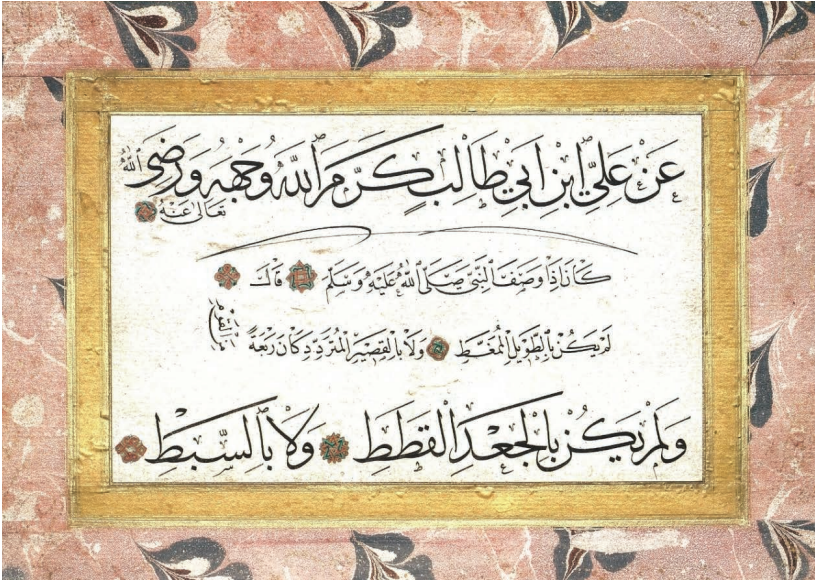 عَنْ عَلِيِّ ابْنِ اَبِي طَالِبٍ كَرَّمَ اللّٰهُ وَجْهَهُ وَرَضِيَ اللّٰهُ
تَعَالٰى عَنْهُ
كَانَ اِذَا وَصَفَ النَّبِيَّ صَلَّى اللّٰهُ عَلَيْهِ وَسَلَّمَ قَالَ
لَمْ يَكُنْ بِالطَّوِيلِ الْمُمَّغِطِ وَلَا بِالْقَصِيرِ الْمُتَرَدِّدِ كَانَ رَبْعَةً مِنَ الْقَوْمِ
وَلَمْ يَكُنْ بِالْجَعْدِ الْقَطَطِ وَلَا بِالسَّبِطِ